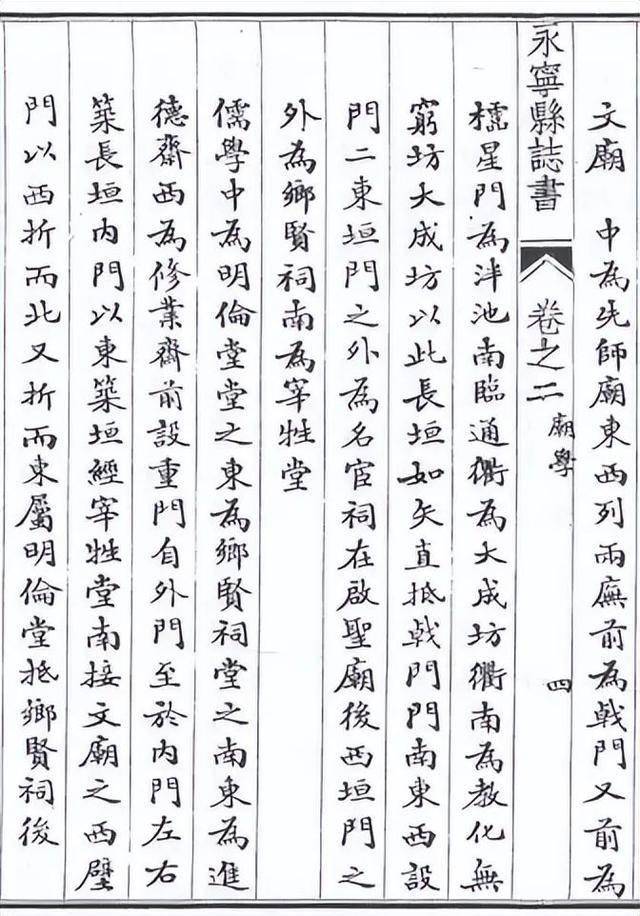 文廟　中為先師廟東西列兩廡前為戟門又前為
永寧縣誌書　卷之二　廟學　四
櫺星門為泮池南臨通衢為大成坊衢南為教化無
窮坊大成坊以此長垣如矢直抵戟門門南東西設
門二東垣門之外為名宦祠在啟聖廟後西垣門之
外為鄉賢祠南為宰牲堂
儒學中為明倫堂堂之東為鄉賢祠堂之南東為進
德齋西為修業齋前設重門自外門至於內門左右
築長垣內門以東築垣經宰牲堂南接文廟之西壁
門以西折而北又折而東屬明倫堂抵鄉賢祠後